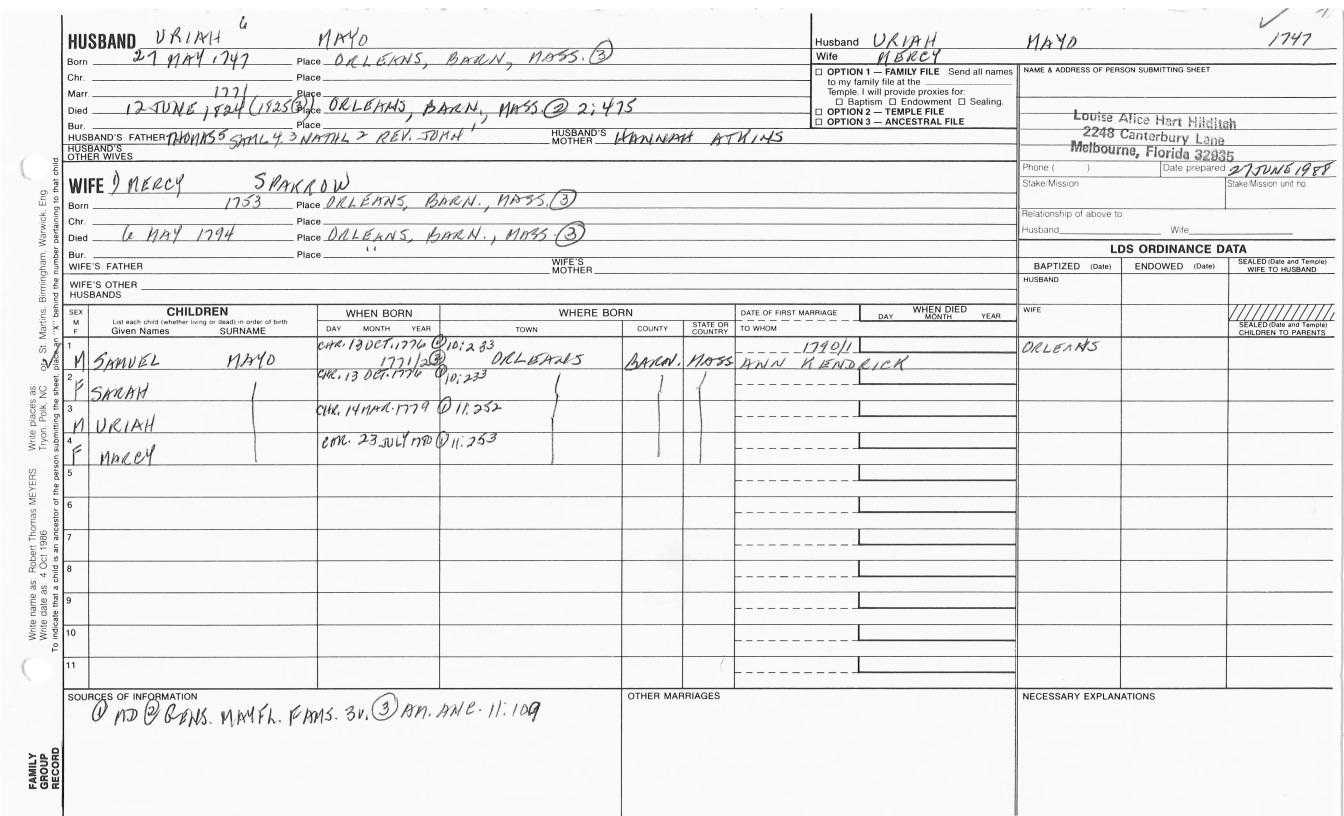 HUSBAND URIAH 6 MAYO
Born 27 MAY 1747 Place ORLEANS, BARN, MASS. ③
Chr. Place
Marr. 1771 Place
Died 12 JUNE 1824 (1825③) Place ORLEANS, BARN, MASS ② 2:475
Bur. Place
HUSBAND'S FATHER THOMAS 5 SAML 4, 3 NATHL 2 REV. JOHN 1 HUSBAND'S MOTHER HANNAH ATKINS
HUSBAND'S OTHER WIVES
Husband URIAH MAYO 1747
Wife MERCY
☐ OPTION 1 — FAMILY FILE Send all names
to my family file at the
Temple. I will provide proxies for:
☐ Baptism ☐ Endowment ☐ Sealing.
☐ OPTION 2 — TEMPLE FILE
☐ OPTION 3 — ANCESTRAL FILE
NAME & ADDRESS OF PERSON SUBMITTING SHEET
Louise Alice Hart Hilditch
2248 Canterbury Lane
Melbourne, Florida 32935
Phone ( ) Date prepared 27 JUNE 1988
Stake/Mission Stake/Mission unit no.
Relationship of above to
Husband Wife
WIFE MERCY SPARROW
Born 1753 Place ORLEANS, BARN., MASS. ③
Chr. Place
Died 6 MAY 1794 Place ORLEANS, BARN., MASS. ③
Bur. Place "
WIFE'S FATHER WIFE'S MOTHER
WIFE'S OTHER HUSBANDS
LDS ORDINANCE DATA
BAPTIZED (Date) ENDOWED (Date) SEALED (Date and Temple) WIFE TO HUSBAND
HUSBAND
WIFE
SEALED (Date and Temple) CHILDREN TO PARENTS
SEX M F CHILDREN WHEN BORN WHERE BORN DATE OF FIRST MARRIAGE WHEN DIED
List each child (whether living or dead) in order of birth
Given Names SURNAME DAY MONTH YEAR TOWN COUNTY STATE OR COUNTRY TO WHOM DAY MONTH YEAR
1 CHR. 13 OCT. 1776 ① 10:233 1790/1 ORLEANS
M SAMUEL MAYO 1771/2 ③ ORLEANS BARN. MASS ANN KENDRICK
2 CHR. 13 OCT. 1776 ① 10:233
F SARAH
3 CHR. 14 MAR. 1779 ① 11:252
M URIAH
4 CHR. 23 JULY 1780 ① 11:253
F MARCY
5
6
7
8
9
10
11
SOURCES OF INFORMATION OTHER MARRIAGES NECESSARY EXPLANATIONS
① MD ② GENS. MAYFL. FAMS. 3v. ③ AM. ANC. 11:109
Write name as Robert Thomas MEYERS Write places as Tryon, Polk, NC or St. Martins, Birmingham, Warwick, Eng
Write date as 4 Oct 1986
To indicate that a child is an ancestor of the person submitting the sheet, place an "X" behind the number pertaining to that child
FAMILY
GROUP
RECORD